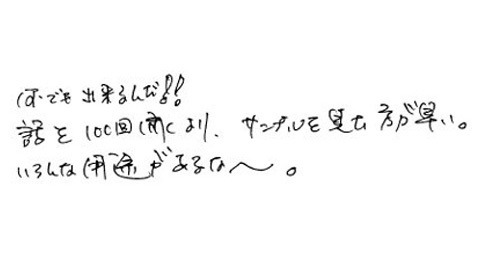 何でも出来るんだ!!
話を100回聞くより、サンプルを見た方が早い。
いろんな用途があるな〜。